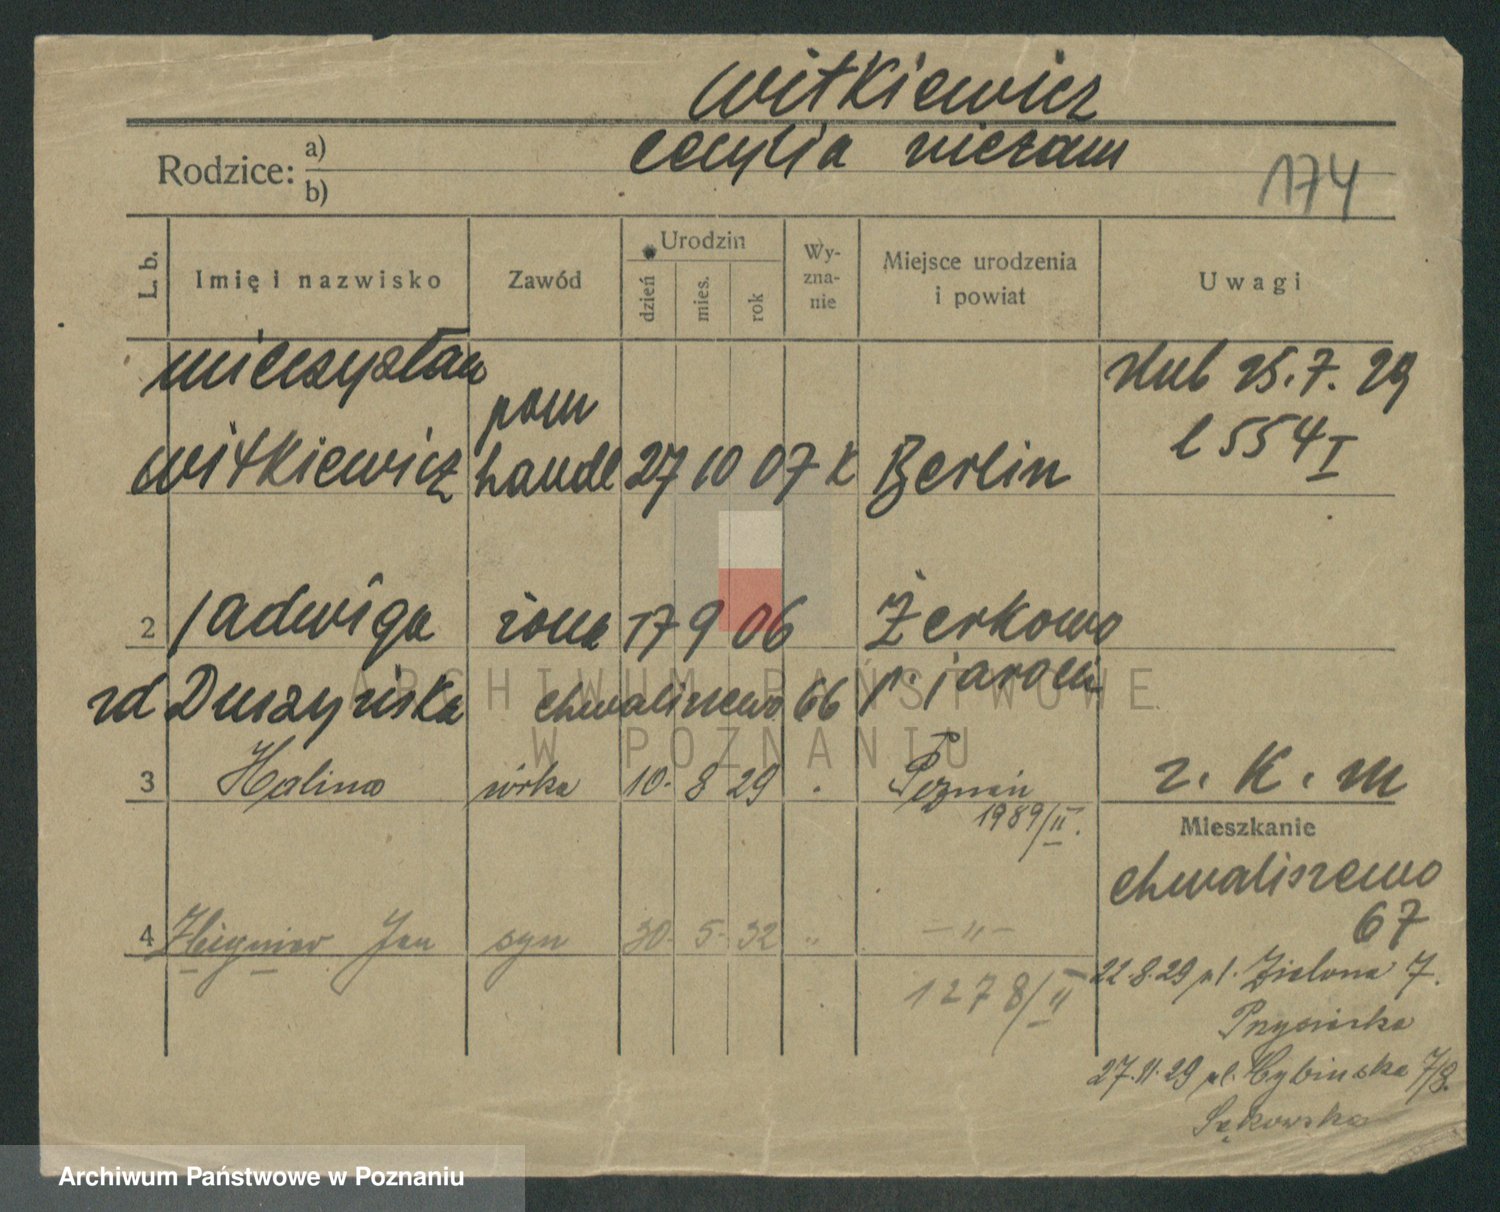 Witkiewicz
Rodzice: a)
Cecylia niezam
b)
174
L. b.
Imię i nazwisko
Zawód
Urodzin
dzień
mies.
rok
Wy-
zna-
nie
Miejsce urodzenia
i powiat
Uwagi
Mieczysław
Witkiewicz
pom
handl
27 10 07 K
Berlin
ślub 25.7.29
l 554 I
2 Jadwiga żona 17 9 06 Żerkowo
zd Duszyńska Chwaliszewo 66 p. Jarocin
3 Halina córka 10. 8 29 . Poznań
1989/II.
z. K. m
Mieszkanie
Chwaliszewo
67
4 Zbigniew Jan syn 30. 5. 32 " — " —
1278/II
22.8.29 ul. Zielona 7.
27.11.29 ul. Rybińska 7/8.
Sękowska
ARCHIWUM PAŃSTWOWE
W POZNANIU
Archiwum Państwowe w Poznaniu